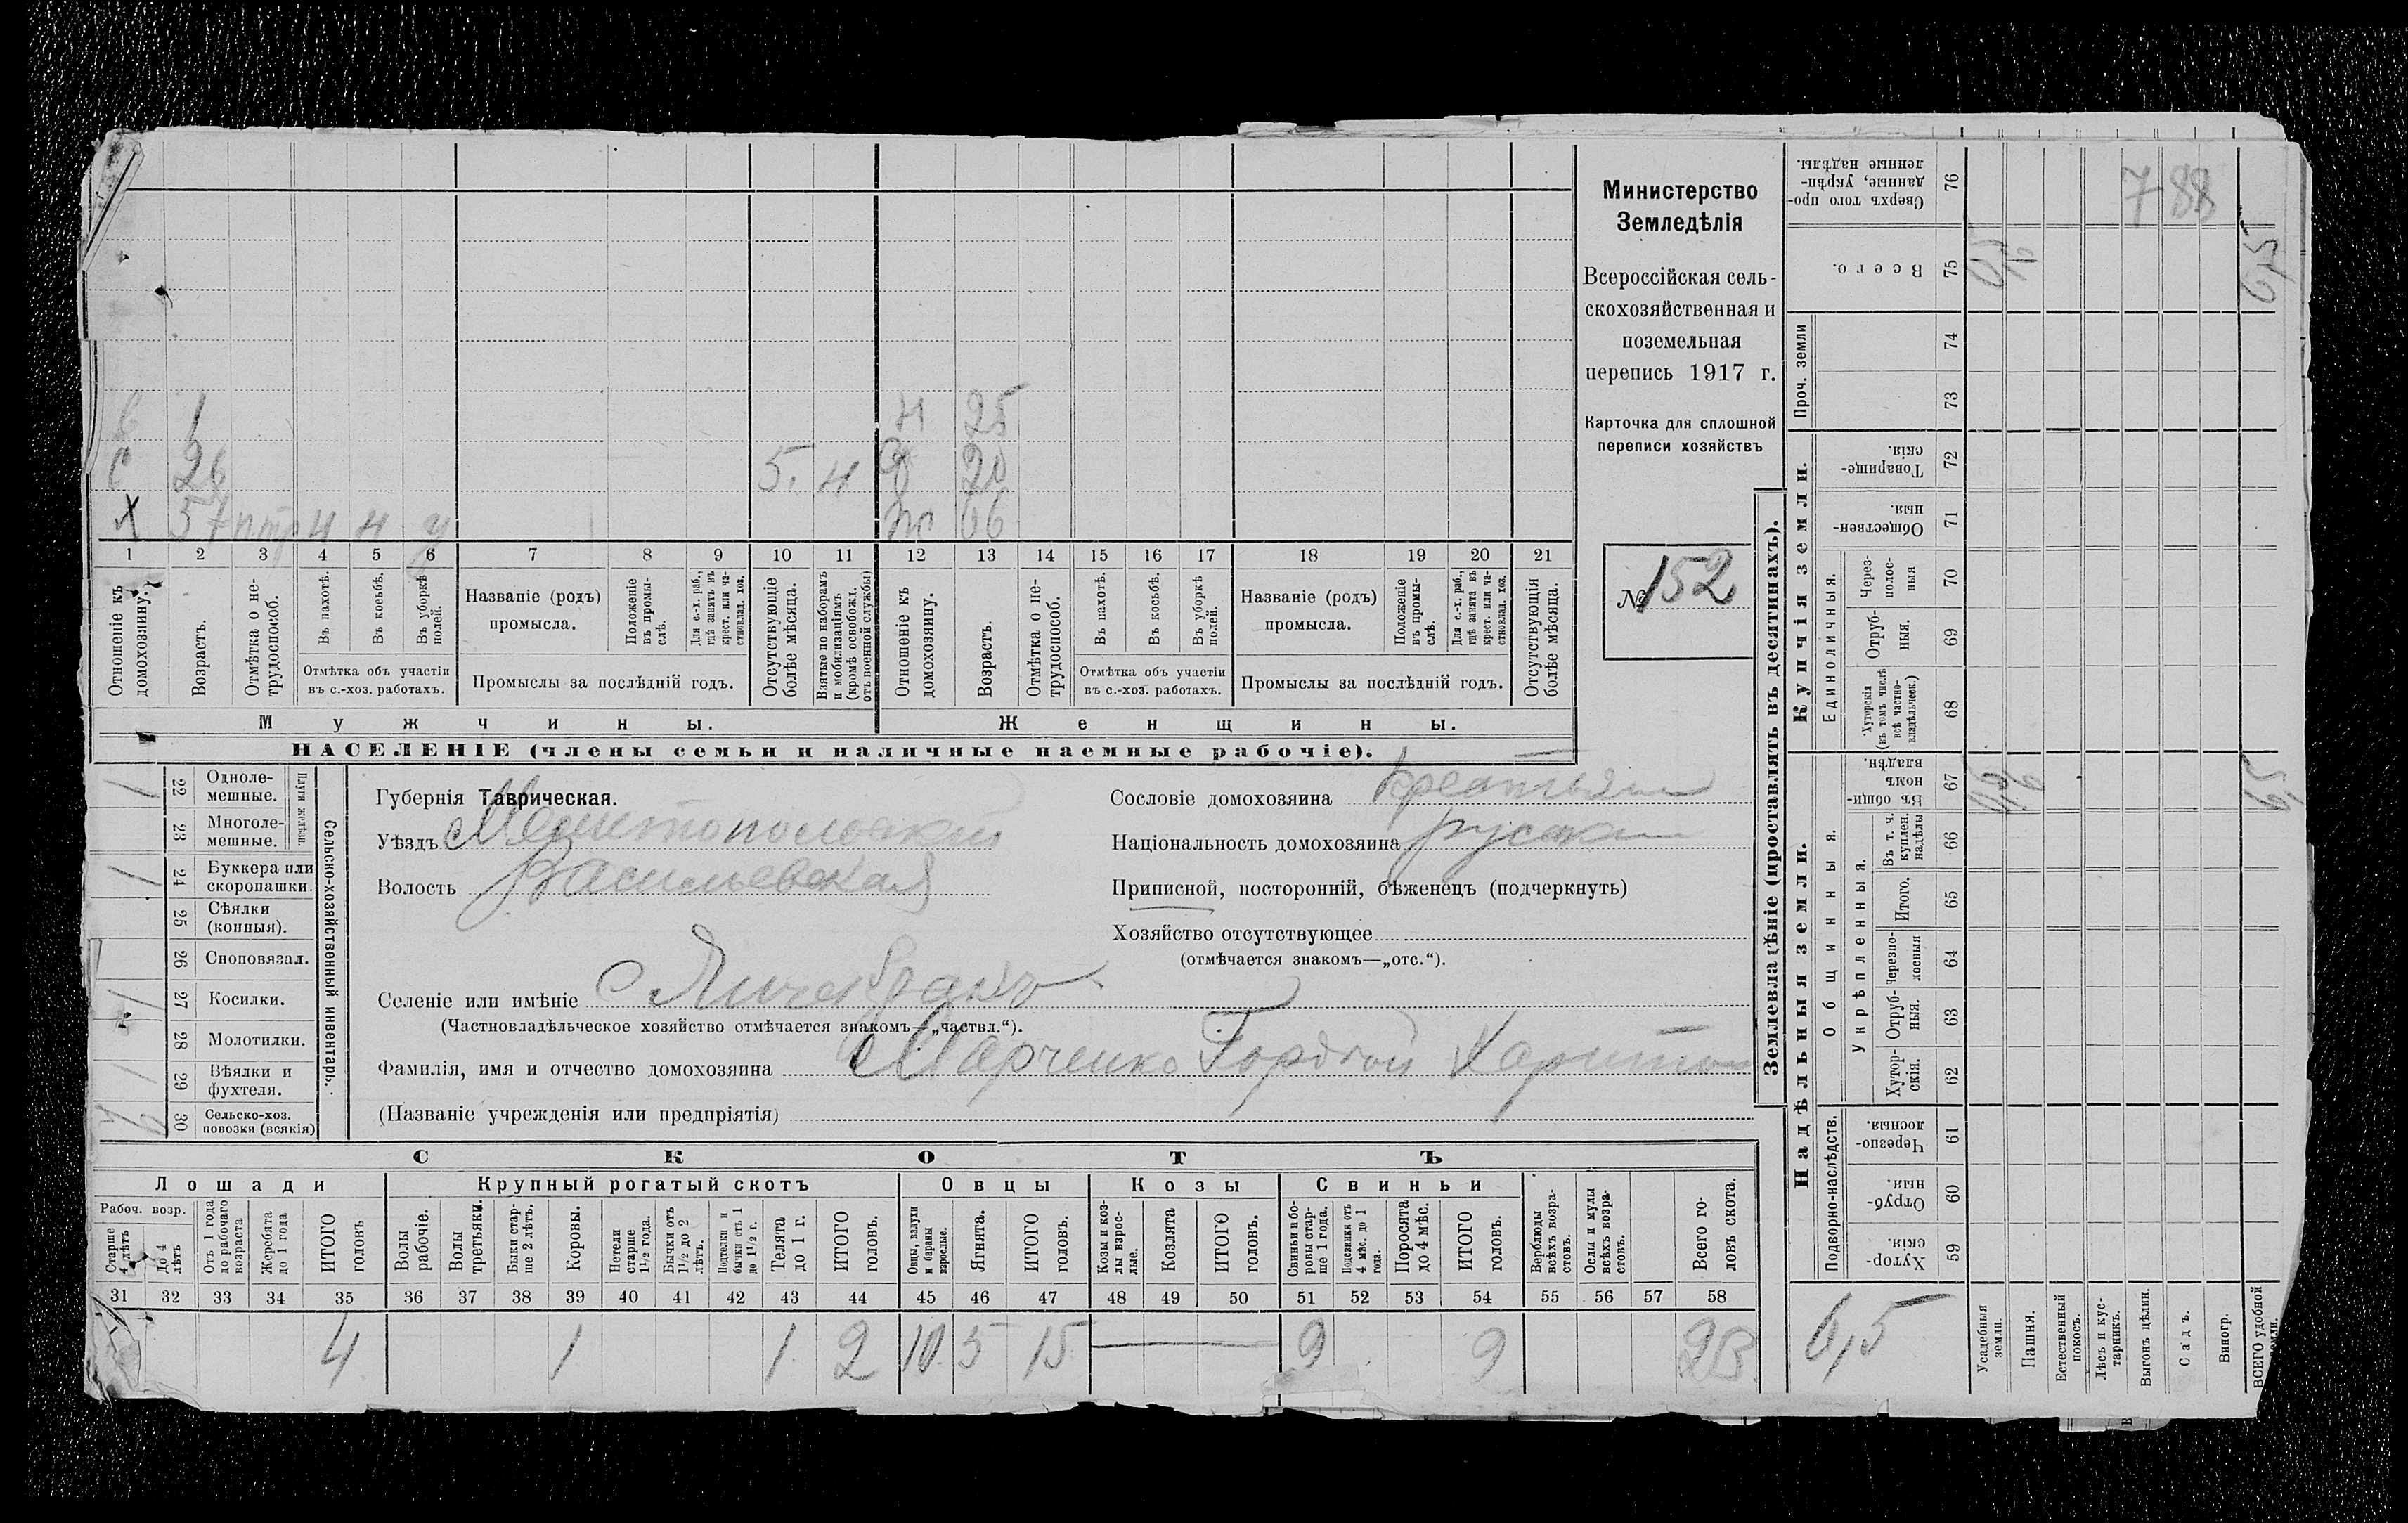 Министерство
Земледѣлія
Всероссійская сель-
скохозяйственная и
поземельная
перепись 1917 г.
Карточка для сплошной
переписи хозяйствъ
№ 152
1 Н 25
С 26 5. н Д 20
Х 57 н н у Ж 66
1 2 3 4 5 6 7 8 9 10 11 12 13 14 15 16 17 18 19 20 21
Отношеніе къ домохозяину.
Возрастъ.
Отмѣтка о не-трудоспособ.
Въ пахотѣ.
Въ косьбѣ.
Въ уборкѣ полей.
Отмѣтка объ участіи
въ с.-хоз. работахъ.
Названіе (родъ)
промысла.
Положеніе въ промы-слѣ.
Для с.-х. раб., гдѣ занятъ въ крест. или ча-стновлад. хоз.
Промыслы за послѣдній годъ.
Отсутствующіе болѣе мѣсяца.
Взятые по наборамъ и мобилизаціямъ (кромѣ освобожд. отъ военной службы)
Отношеніе къ домохозяину.
Возрастъ.
Отмѣтка о не-трудоспособ.
Въ пахотѣ.
Въ косьбѣ.
Въ уборкѣ полей.
Отмѣтка объ участіи
въ с.-хоз. работахъ.
Названіе (родъ)
промысла.
Положеніе въ промы-слѣ.
Для с.-х. раб., гдѣ занята въ крест. или ча-стновлад. хоз.
Промыслы за послѣдній годъ.
Отсутствующія болѣе мѣсяца.
Мужчины.
Женщины.
НАСЕЛЕНІЕ (члены семьи и наличные наемные рабочіе).
Губернія Таврическая.
Уѣздъ Мелитопольскій
Волость Васильевская
Сословіе домохозяина крестьян
Національность домохозяина русскій
Приписной, посторонній, бѣженецъ (подчеркнуть)
Хозяйство отсутствующее
(отмѣчается знакомъ—„отс.“).
Селеніе или имѣніе С
(Частновладѣльческое хозяйство отмѣчается знакомъ—„частвл.“).
Фамилія, имя и отчество домохозяина Марченко Гордей Харитон
(Названіе учрежденія или предпріятія)
Сельско-хозяйственный инвентарь.
Плуги желѣзн.
1 22 Одноле-мешные.
23 Многоле-мешные.
1 24 Буккера или скоропашки.
25 Сѣялки (конныя).
26 Сноповязал.
1 27 Косилки.
28 Молотилки.
1 29 Вѣялки и фухтеля.
2 30 Сельско-хоз. повозки (всякія)
СКОТЪ
Лошади
Крупный рогатый скотъ
Овцы
Козы
Свиньи
Рабоч. возр.
Старше 4 лѣтъ
До 4 лѣтъ
Отъ 1 года до рабочаго возраста
Жеребята до 1 года
ИТОГО головъ
Волы рабочіе.
Волы третьяки.
Быки стар-ше 2 лѣтъ.
Коровы.
Нетели старше 1½ года.
Бычки отъ 1½ до 2 лѣтъ.
Подтелки и бычки отъ 1 до 1½ г.
Телята до 1 г.
ИТОГО головъ.
Овцы, валухи и бараны взрослые.
Ягнята.
ИТОГО головъ.
Козы и коз-лы взрос-лые.
Козлята
ИТОГО головъ.
Свиньи и бо-ровы стар-ше 1 года.
Подсвинки отъ 4 мѣс. до 1 года.
Поросята до 4 мѣс.
ИТОГО головъ.
Верблюды всѣхъ возра-стовъ.
Ослы и мулы всѣхъ возра-стовъ.
Всего го-ловъ скота.
31 32 33 34 35 36 37 38 39 40 41 42 43 44 45 46 47 48 49 50 51 52 53 54 55 56 57 58
4 1 1 2 10 5 15 9 9
Землевладѣніе (проставлять въ десятинахъ).
Надѣльныя земли.
Купчія земли.
Проч. земли
Подворно-наслѣдств.
Общинныя.
Укрѣпленныя.
Единоличныя.
Сверхъ того про-данные, укрѣп-ленные надѣлы. 76
Всего. 75
74
73
Товарище-скія. 72
Обществен-ныя. 71
Через-полос-ныя 70
Отруб-ныя. 69
Хуторскія (въ томъ числѣ всѣ частно-владѣльческ.) 68
Въ общин-номъ владѣн. 67
Въ т. ч. куплен. надѣлы 66
Итого. 65
Черезпо-лосныя 64
Отруб-ныя. 63
Хутор-скія. 62
Черезпо-лосныя. 61
Отруб-ныя. 60
Хутор-скія. 59
6,5
Усадебныя земли.
Пашня.
Естественный покосъ.
Лѣсъ и кус-тарникъ.
Выгонъ цѣлин.
Садъ.
Виногр.
ВСЕГО удобной земли.
788
6,5